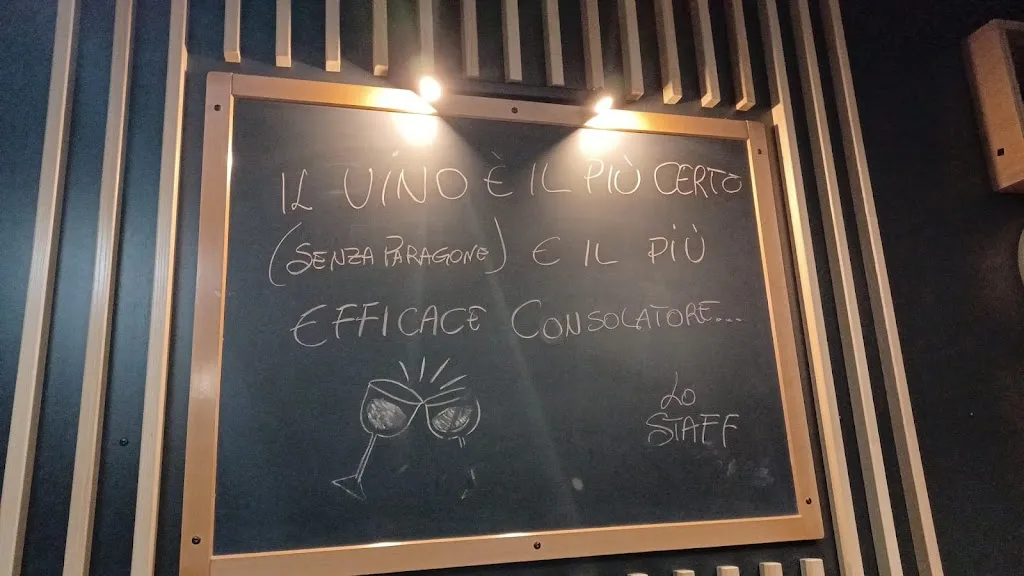 IL VINO È IL PIÙ CERTO
(SENZA PARAGONE) E IL PIÙ
EFFICACE CONSOLATORE...
LO
STAFF